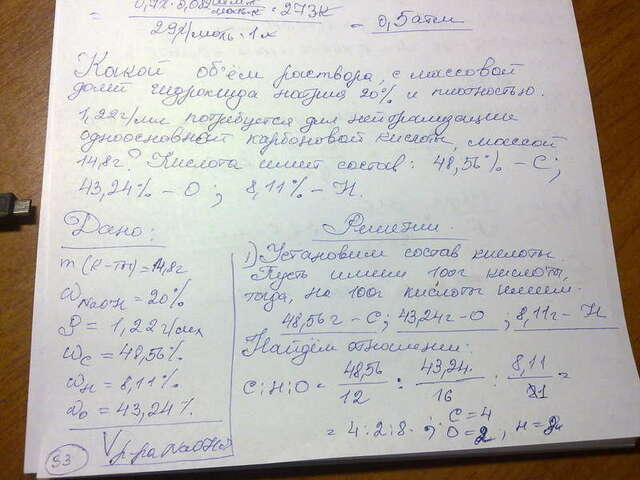 = 0,7г · 0,082 · 273К
29г/моль · 1л
= 0,5 атм
Какой объём раствора, с массовой
долей гидроксида натрия 20% и плотностью
1,22г/мл потребуется для нейтрализации
одноосновной карбоновой кислоты, массой
14,8г? Кислота имеет состав: 48,56% – С;
43,24% – О; 8,11% – Н.
Дано:
m(к-ты) = 14,8г
ω NaOH = 20%
ρ = 1,22г/мл
ωC = 48,56%
ωH = 8,11%
ωO = 43,24%
V р-ра NaOH
93
Решение.
1) Установим состав кислоты.
Пусть имеем 100г кислоты,
тогда, на 100г кислоты имеем.
48,56г – С; 43,24г – О; 8,11г – Н
Найдём отношения:
С:Н:О = 48,56 : 43,24 : 8,11 =
12 16 1
= 4:2:8. С=4
О=2, Н=